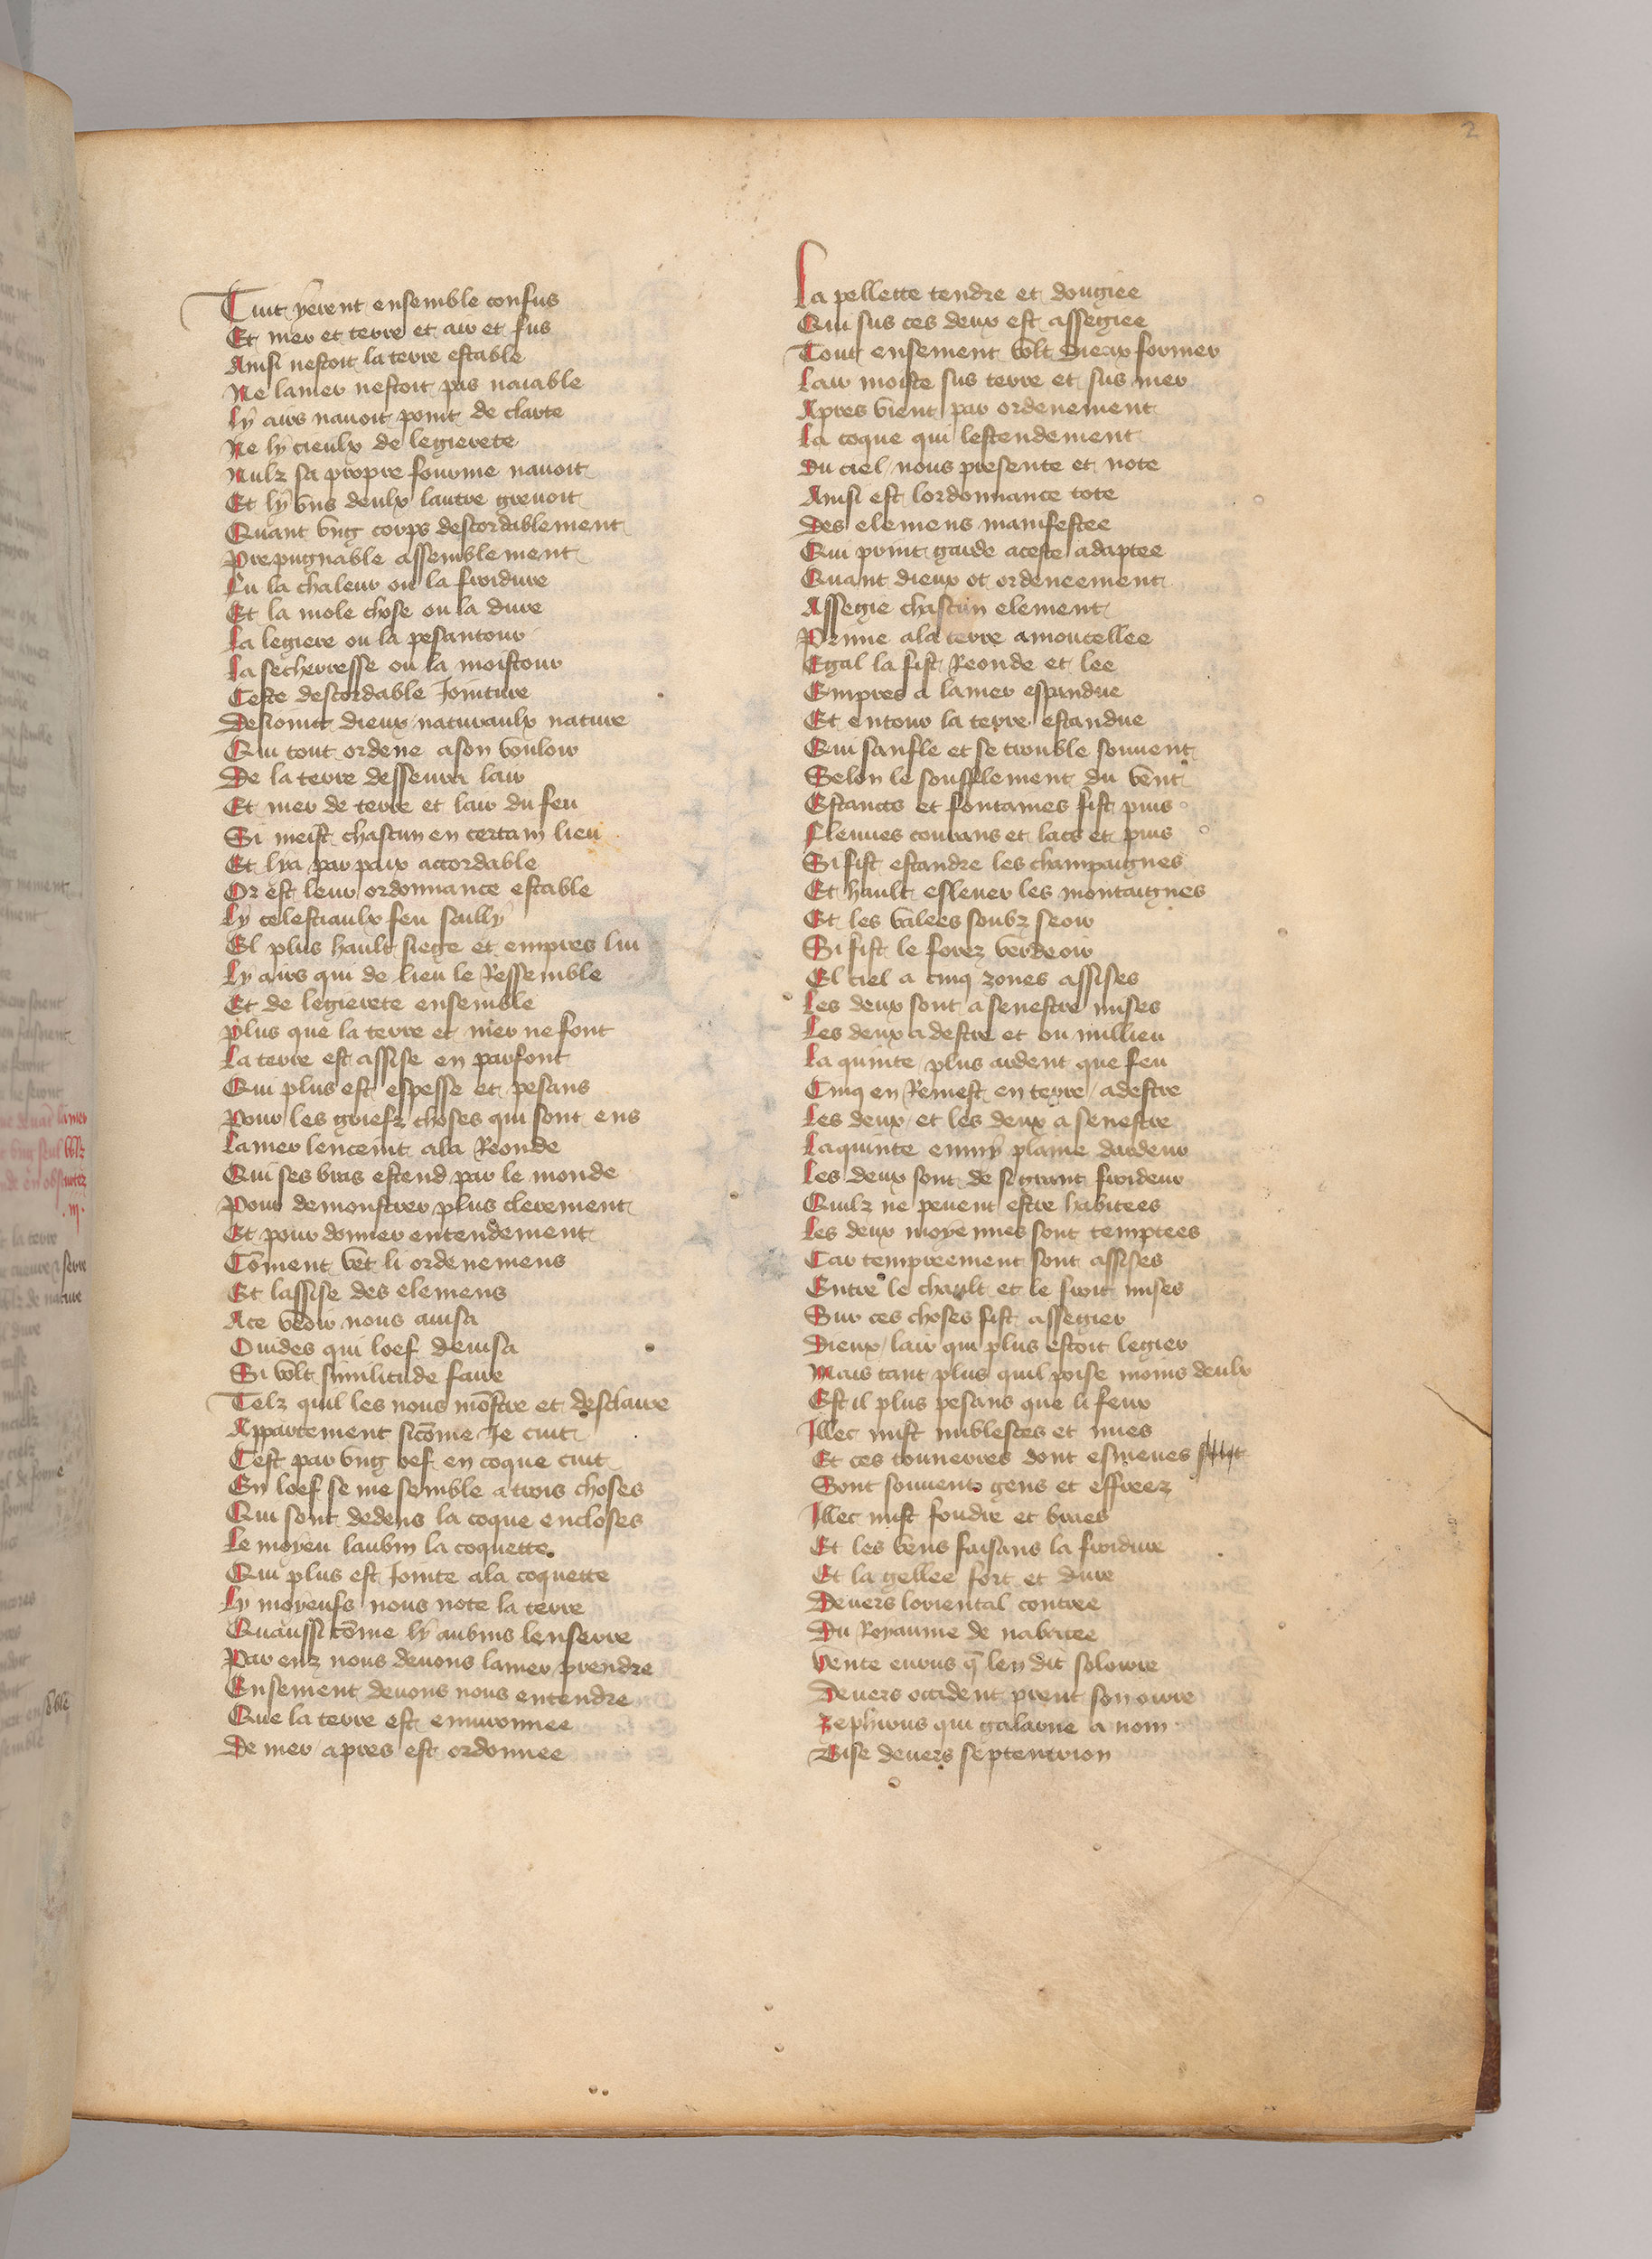 2
Tuit yerent ensemble confus
Et mer et terre et air et fus
Ainsi nestoit la terre estable
Ne lamer nestoit pas naiable
Ly airs nauoit point de clarte
Ne ly cieulx de legierete
Nulz sa propre fourme nauoit
Et ly vns deulx lautre greuoit
Quant vng corps descordablement
Prepugnable assemblement
Fu la chaleur ou la froidure
Et la mole chose ou la dure
La legiere ou la pesantour
La secherresse ou la moistour
Ceste descordable Jointure
Desioint dieux naturaulx nature
Qui tout ordene a son vouloir
De la terre desseura lair
Et mer de terre et lair du feu
Si meist chascun en certain lieu
Et lya par paix accordable
Or est leur ordonnance estable
Ly celestiaulx feu sailly
El plus hault siege et empres lui
Ly airs qui de lieu le Ressemble
Et de legierete ensemble
Plus que la terre et mer ne font
La terre est assise en parfont
Qui plus est espesse et pesans
Pour les griefz choses qui sont ens
Lamer lenceint ala Reonde
Qui ses bras estend par le monde
Pour demonstrer plus clerement
Et pour donner entendement
Coment vet li ordenemens
Et lassise des elemens
Ace veoir nous auisa
Ouides qui loef deuisa
Si volt similitude faire
Telz quil les nous mostre et desclaire
Appartement sicome Je cuit
Cest par vng oef en coque cuit
En loef se me semble a trois choses
Qui sont dedens la coque encloses
Le moyeu laubin la coquette
Qui plus est Jointe ala coquette
Ly moyeufs nous note la terre
Quaussi come ly aubins lenserre
Par euz nous deuons lamer prendre
Ensement deuons nous entendre
Que la terre est enuironnee
De mer apres est ordonnee
La pellette tendre et dougiee
Qui sus ces deux est assegiee
Tout ensement volt dieux former
Lair moiste sus terre et sus mer
Apres vient par ordenement
La coque qui lestendement
Du ciel nous presente et note
Ainsi est lordonnance tote
Des elemens manifestee
Qui print garde aceste adaptee
Quant dieux ot ordeneement
Assegie chascun element
Prime ala terre amoncellee
Egal la fist Reonde et lee
Empres a lamer espandue
Et entour la terre estandue
Qui sanfle et se trouble souuent
Selon le soufflement du vent
Estancs et fontaines fist puis
Fleuues courans et lacs et puis
Si fist estandre les champaignes
Et hault esleuer les montaignes
Et les valees soubz seoir
Si fist le forez verdeoir
El ciel a cinq zones assises
Les deux sont a senestre mises
Les deux a destre et ou millieu
La quinte plus ardent que feu
Cinq en Remest en terre a destre
Les deux et les deux a senestre
Laquinte enmy plaine dardeur
Les deux sont de si grant froideur
Quilz ne peuent estre habitees
Les deux moyennes sont temptees
Car tempreement sont assises
Entre le chault et le froit mises
Sur ces choses fist assegier
Dieux lair qui plus estoit legier
Mais tant plus quil poise moins deulx
Est il plus pesans que li feux
Illec mist niblestes et nues
Et ces tonnerres dont esmeues
Sont souuent gens et effreez
Illec mist foudre et
Et les vens faisans la froidure
Et la gellee fort et dure
Deuers loriental contree
Du Royaume de nabatee
Vente eurus q len dit solorre
Deuers occident prent son oirre
Zephirus qui galarne a nom
Bise deuers septentrion